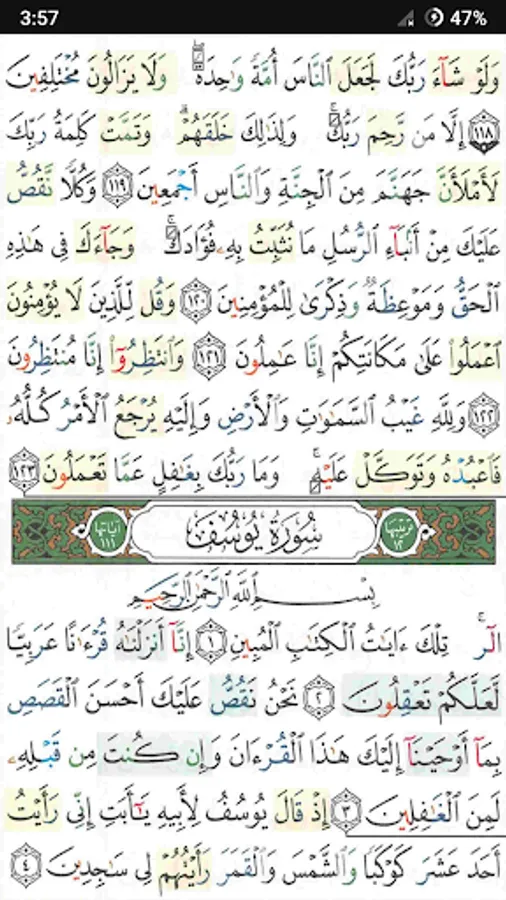 3:57 47%
وَلَوْ شَآءَ رَبُّكَ لَجَعَلَ ٱلنَّاسَ أُمَّةً وَٰحِدَةً ۖ وَلَا يَزَالُونَ مُخْتَلِفِينَ
١١٨ إِلَّا مَن رَّحِمَ رَبُّكَ ۚ وَلِذَٰلِكَ خَلَقَهُمْ ۗ وَتَمَّتْ كَلِمَةُ رَبِّكَ
لَأَمْلَأَنَّ جَهَنَّمَ مِنَ ٱلْجِنَّةِ وَٱلنَّاسِ أَجْمَعِينَ ١١٩ وَكُلًّا نَّقُصُّ
عَلَيْكَ مِنْ أَنۢبَآءِ ٱلرُّسُلِ مَا نُثَبِّتُ بِهِۦ فُؤَادَكَ ۚ وَجَآءَكَ فِى هَٰذِهِ
ٱلْحَقُّ وَمَوْعِظَةٌ وَذِكْرَىٰ لِلْمُؤْمِنِينَ ١٢٠ وَقُل لِّلَّذِينَ لَا يُؤْمِنُونَ
ٱعْمَلُوا۟ عَلَىٰ مَكَانَتِكُمْ إِنَّا عَٰمِلُونَ ١٢١ وَٱنتَظِرُوٓا۟ إِنَّا مُنتَظِرُونَ
١٢٢ وَلِلَّهِ غَيْبُ ٱلسَّمَٰوَٰتِ وَٱلْأَرْضِ وَإِلَيْهِ يُرْجَعُ ٱلْأَمْرُ كُلُّهُۥ
فَٱعْبُدْهُ وَتَوَكَّلْ عَلَيْهِ ۚ وَمَا رَبُّكَ بِغَٰفِلٍ عَمَّا تَعْمَلُونَ ١٢٣
ترتيبها ١٢ سُورَةُ يُوسُفَ آياتها ١١١
بِسْمِ ٱللَّهِ ٱلرَّحْمَٰنِ ٱلرَّحِيمِ
الٓر ۚ تِلْكَ ءَايَٰتُ ٱلْكِتَٰبِ ٱلْمُبِينِ ١ إِنَّآ أَنزَلْنَٰهُ قُرْءَٰنًا عَرَبِيًّا
لَّعَلَّكُمْ تَعْقِلُونَ ٢ نَحْنُ نَقُصُّ عَلَيْكَ أَحْسَنَ ٱلْقَصَصِ
بِمَآ أَوْحَيْنَآ إِلَيْكَ هَٰذَا ٱلْقُرْءَانَ وَإِن كُنتَ مِن قَبْلِهِۦ
لَمِنَ ٱلْغَٰفِلِينَ ٣ إِذْ قَالَ يُوسُفُ لِأَبِيهِ يَٰٓأَبَتِ إِنِّى رَأَيْتُ
أَحَدَ عَشَرَ كَوْكَبًا وَٱلشَّمْسَ وَٱلْقَمَرَ رَأَيْتُهُمْ لِى سَٰجِدِينَ ٤